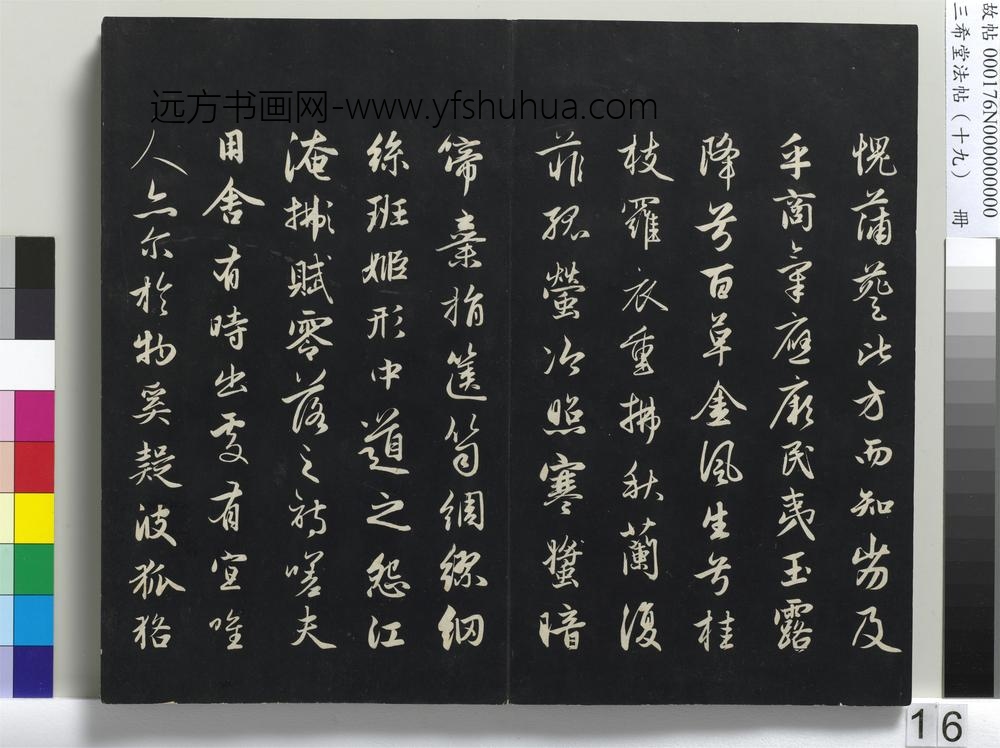 远方书画网-www.yfshuhua.com
愧蒲葵此方而知劣及
乎商氣應厥民夷玉露
降兮百草金風生兮桂
枝羅衣重拂秋蘭復
菲孤螢冷照寒螿暗
啼棄捐篋笥綢繆網
絲班姬形中道之怨江
淹賦零落之詩嗟夫
用舍有時出處有宜唯
人亦尔於物奚疑彼狐狢
故帖 000176N000000000
三希堂法帖（十九） 冊
16